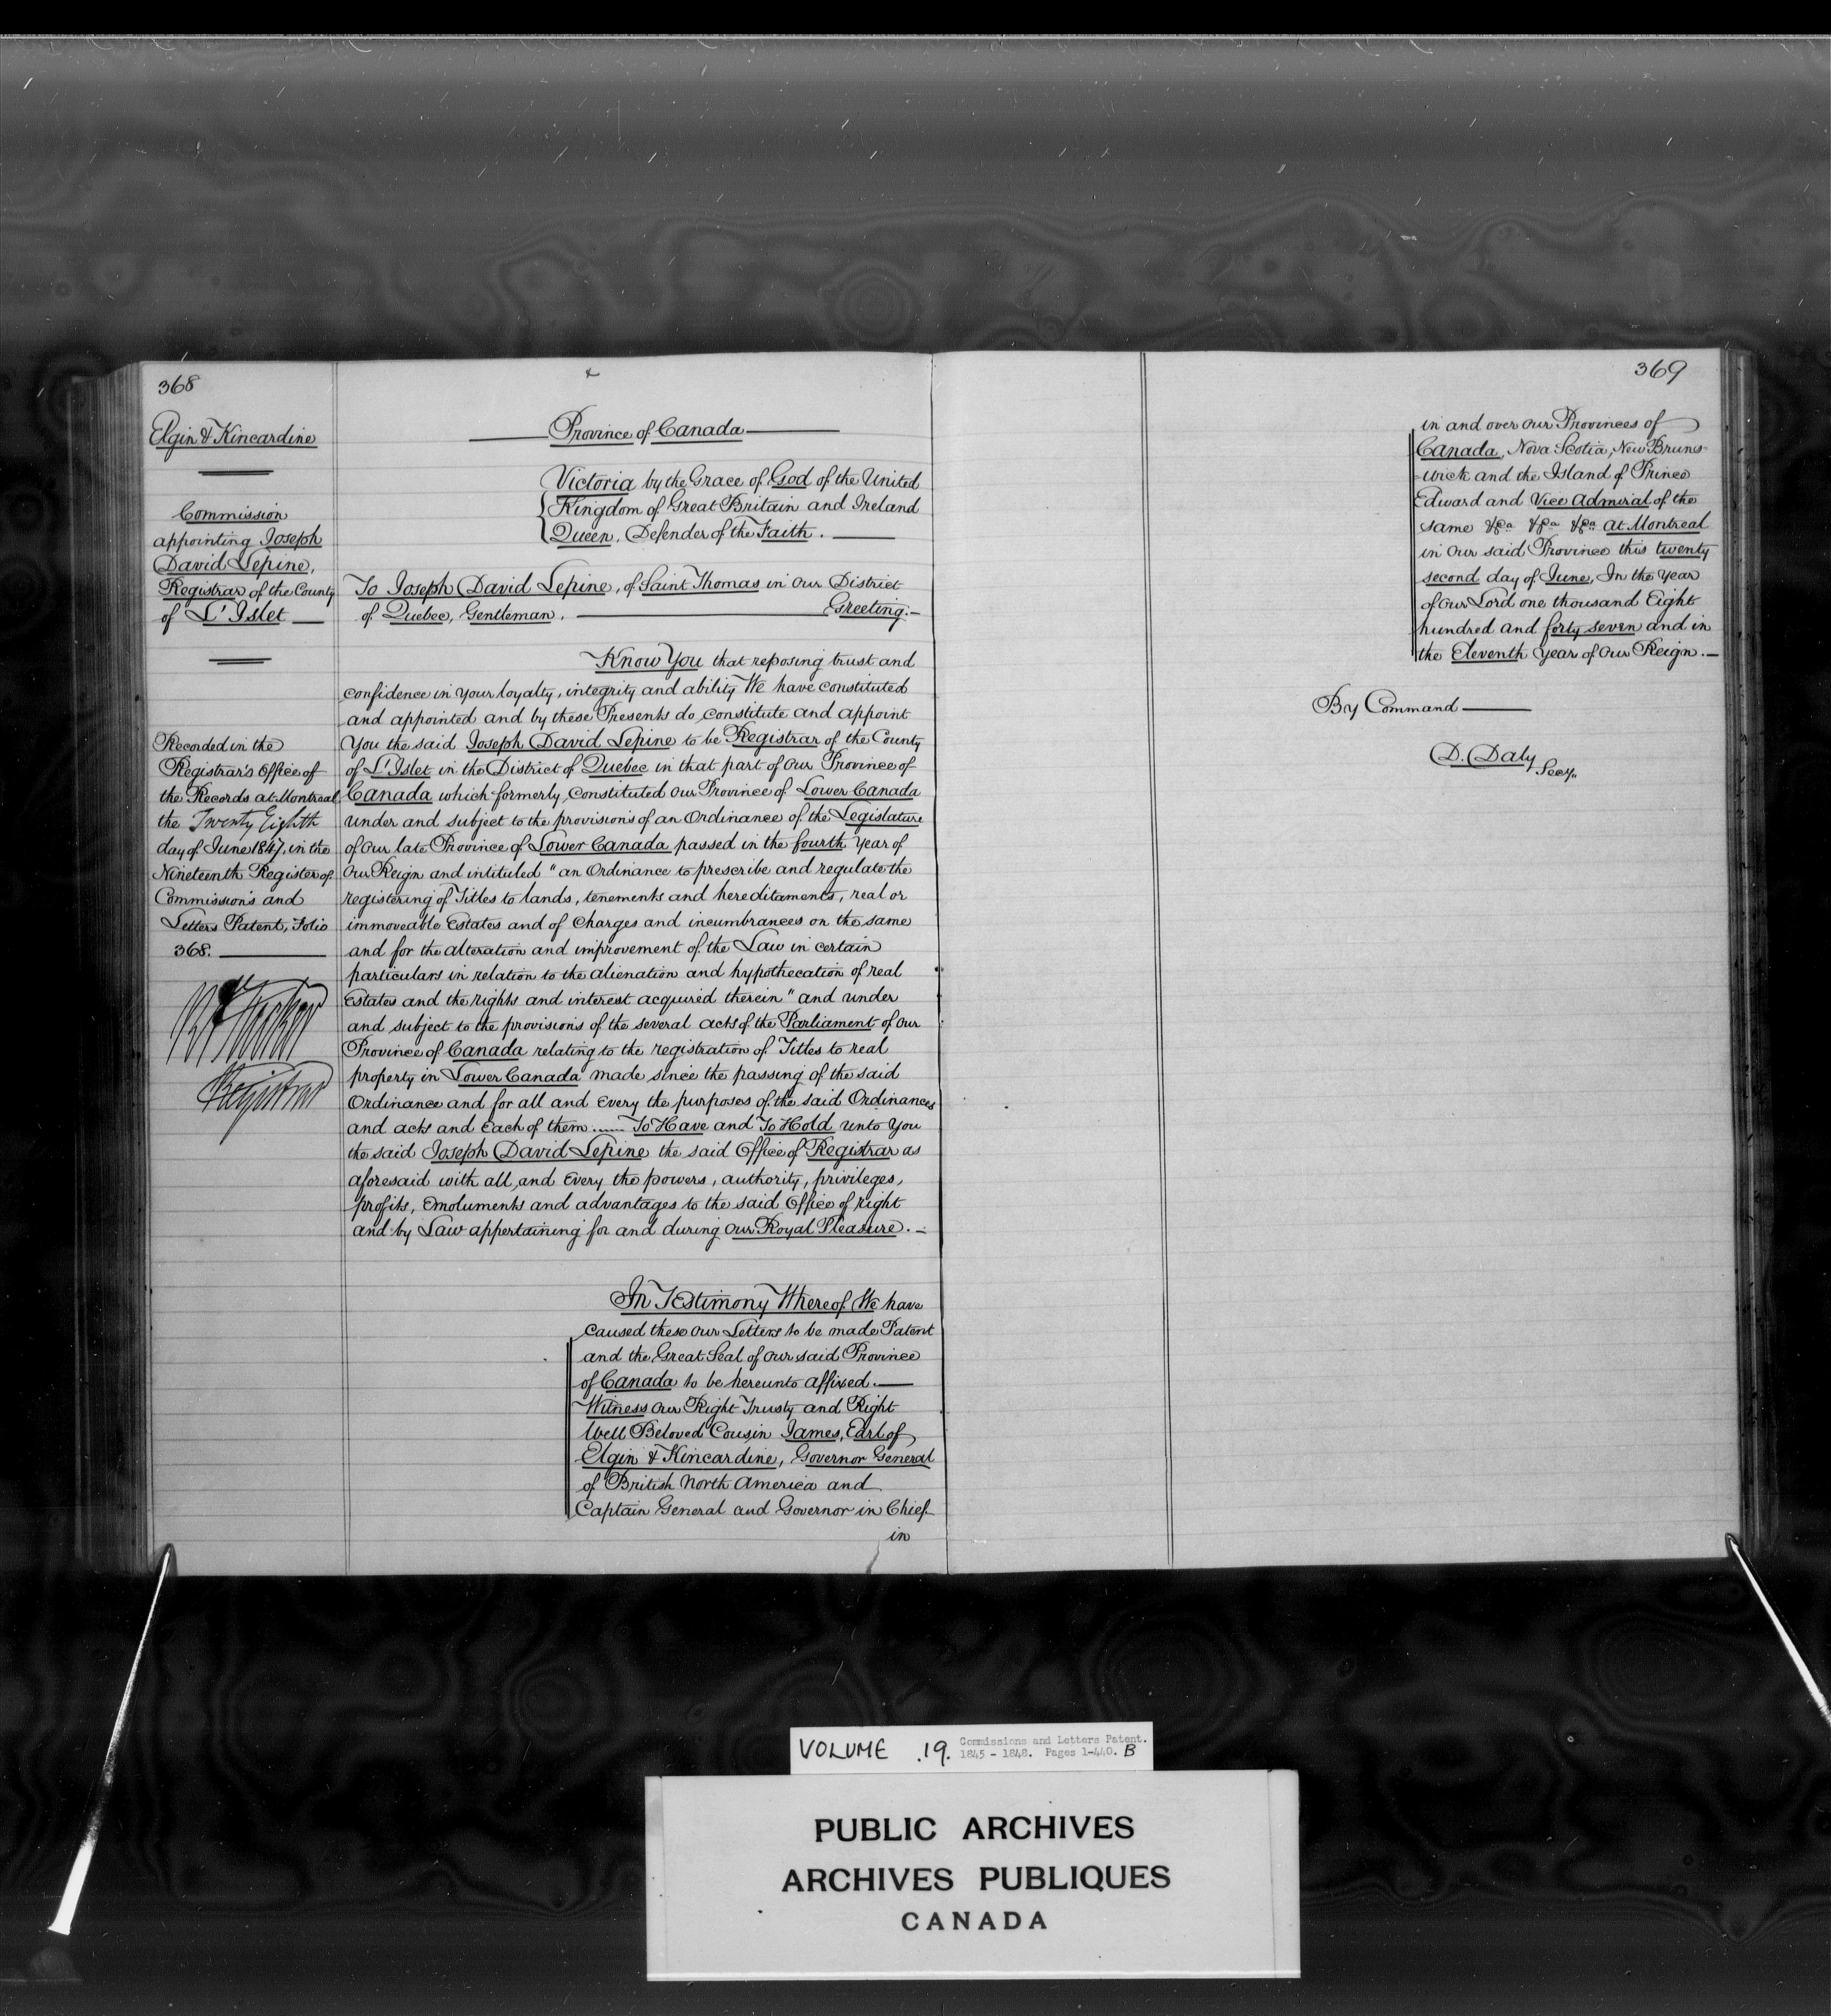 368
Elgin & Kincardine
Commission
appointing Joseph
David Lepine,
Registrar of the County
of L'Islet
Recorded in the
Registrar's Office of
the Records at Montreal
the Twenty Eighth
day of June 1847, in the
Nineteenth Register of
Commissions and
Letters Patent, Folio
368.
Registrar
Province of Canada
Victoria by the Grace of God of the United
Kingdom of Great Britain and Ireland
Queen, Defender of the Faith.
To Joseph David Lepine, of Saint Thomas in Our District
of Quebec, Gentleman. Greeting.
Know You that reposing trust and
confidence in your loyalty, integrity and ability We have constituted
and appointed and by these Presents do constitute and appoint
You the said Joseph David Lepine to be Registrar of the County
of L'Islet in the District of Quebec in that part of Our Province of
Canada which formerly constituted Our Province of Lower Canada
under and subject to the provisions of an Ordinance of the Legislature
of Our late Province of Lower Canada passed in the fourth Year of
Our Reign and intituled "an Ordinance to prescribe and regulate the
registering of Titles to lands, tenements and hereditaments, real or
immoveable Estates and of Charges and incumbrances on the same
and for the alteration and improvement of the Law in certain
particulars in relation to the alienation and hypothecation of real
Estates and the rights and interest acquired therein" and under
and subject to the provisions of the several acts of the Parliament of Our
Province of Canada relating to the registration of Titles to real
property in Lower Canada made since the passing of the said
Ordinance and for all and Every the purposes of the said Ordinances
and acts and Each of them ...... To Have and To Hold unto You
the said Joseph David Lepine the said Office of Registrar as
aforesaid with all and Every the powers, authority, privileges,
profits, Emoluments and advantages to the said Office of right
and by Law appertaining for and during Our Royal Pleasure.
In Testimony Whereof We have
Caused these Our Letters to be made Patent
and the Great Seal of Our said Province
of Canada to be hereunto affixed.
Witness Our Right Trusty and Right
Well Beloved Cousin James, Earl of
Elgin & Kincardine, Governor General
of British North America and
Captain General and Governor in Chief
in
369
in and over Our Provinces of
Canada, Nova Scotia, New Bruns=
=wick and the Island of Prince
Edward and Vice Admiral of the
same &ca &ca &ca at Montreal
in Our said Province this twenty
second day of June, In the Year
of Our Lord one thousand Eight
hundred and forty seven and in
the Eleventh Year of Our Reign.
By Command
D. Daly
Secy.
VOLUME .19. Commissions and Letters Patent.
1845 - 1848. Pages 1-440. B
PUBLIC ARCHIVES
ARCHIVES PUBLIQUES
CANADA